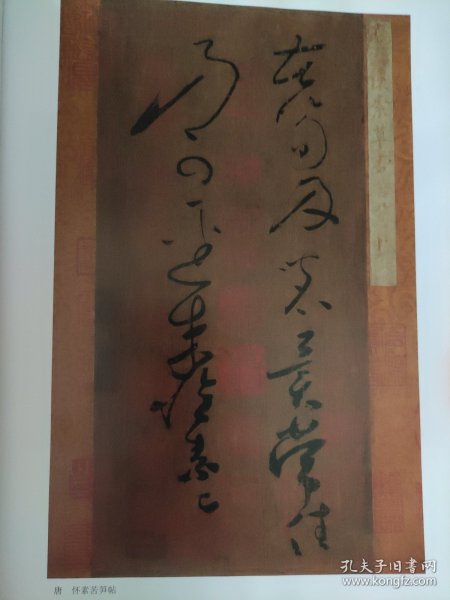 苦笋及茗异常佳
乃可迳来怀素上
唐 怀素苦笋帖
孔夫子旧书网
www.kongfz.com